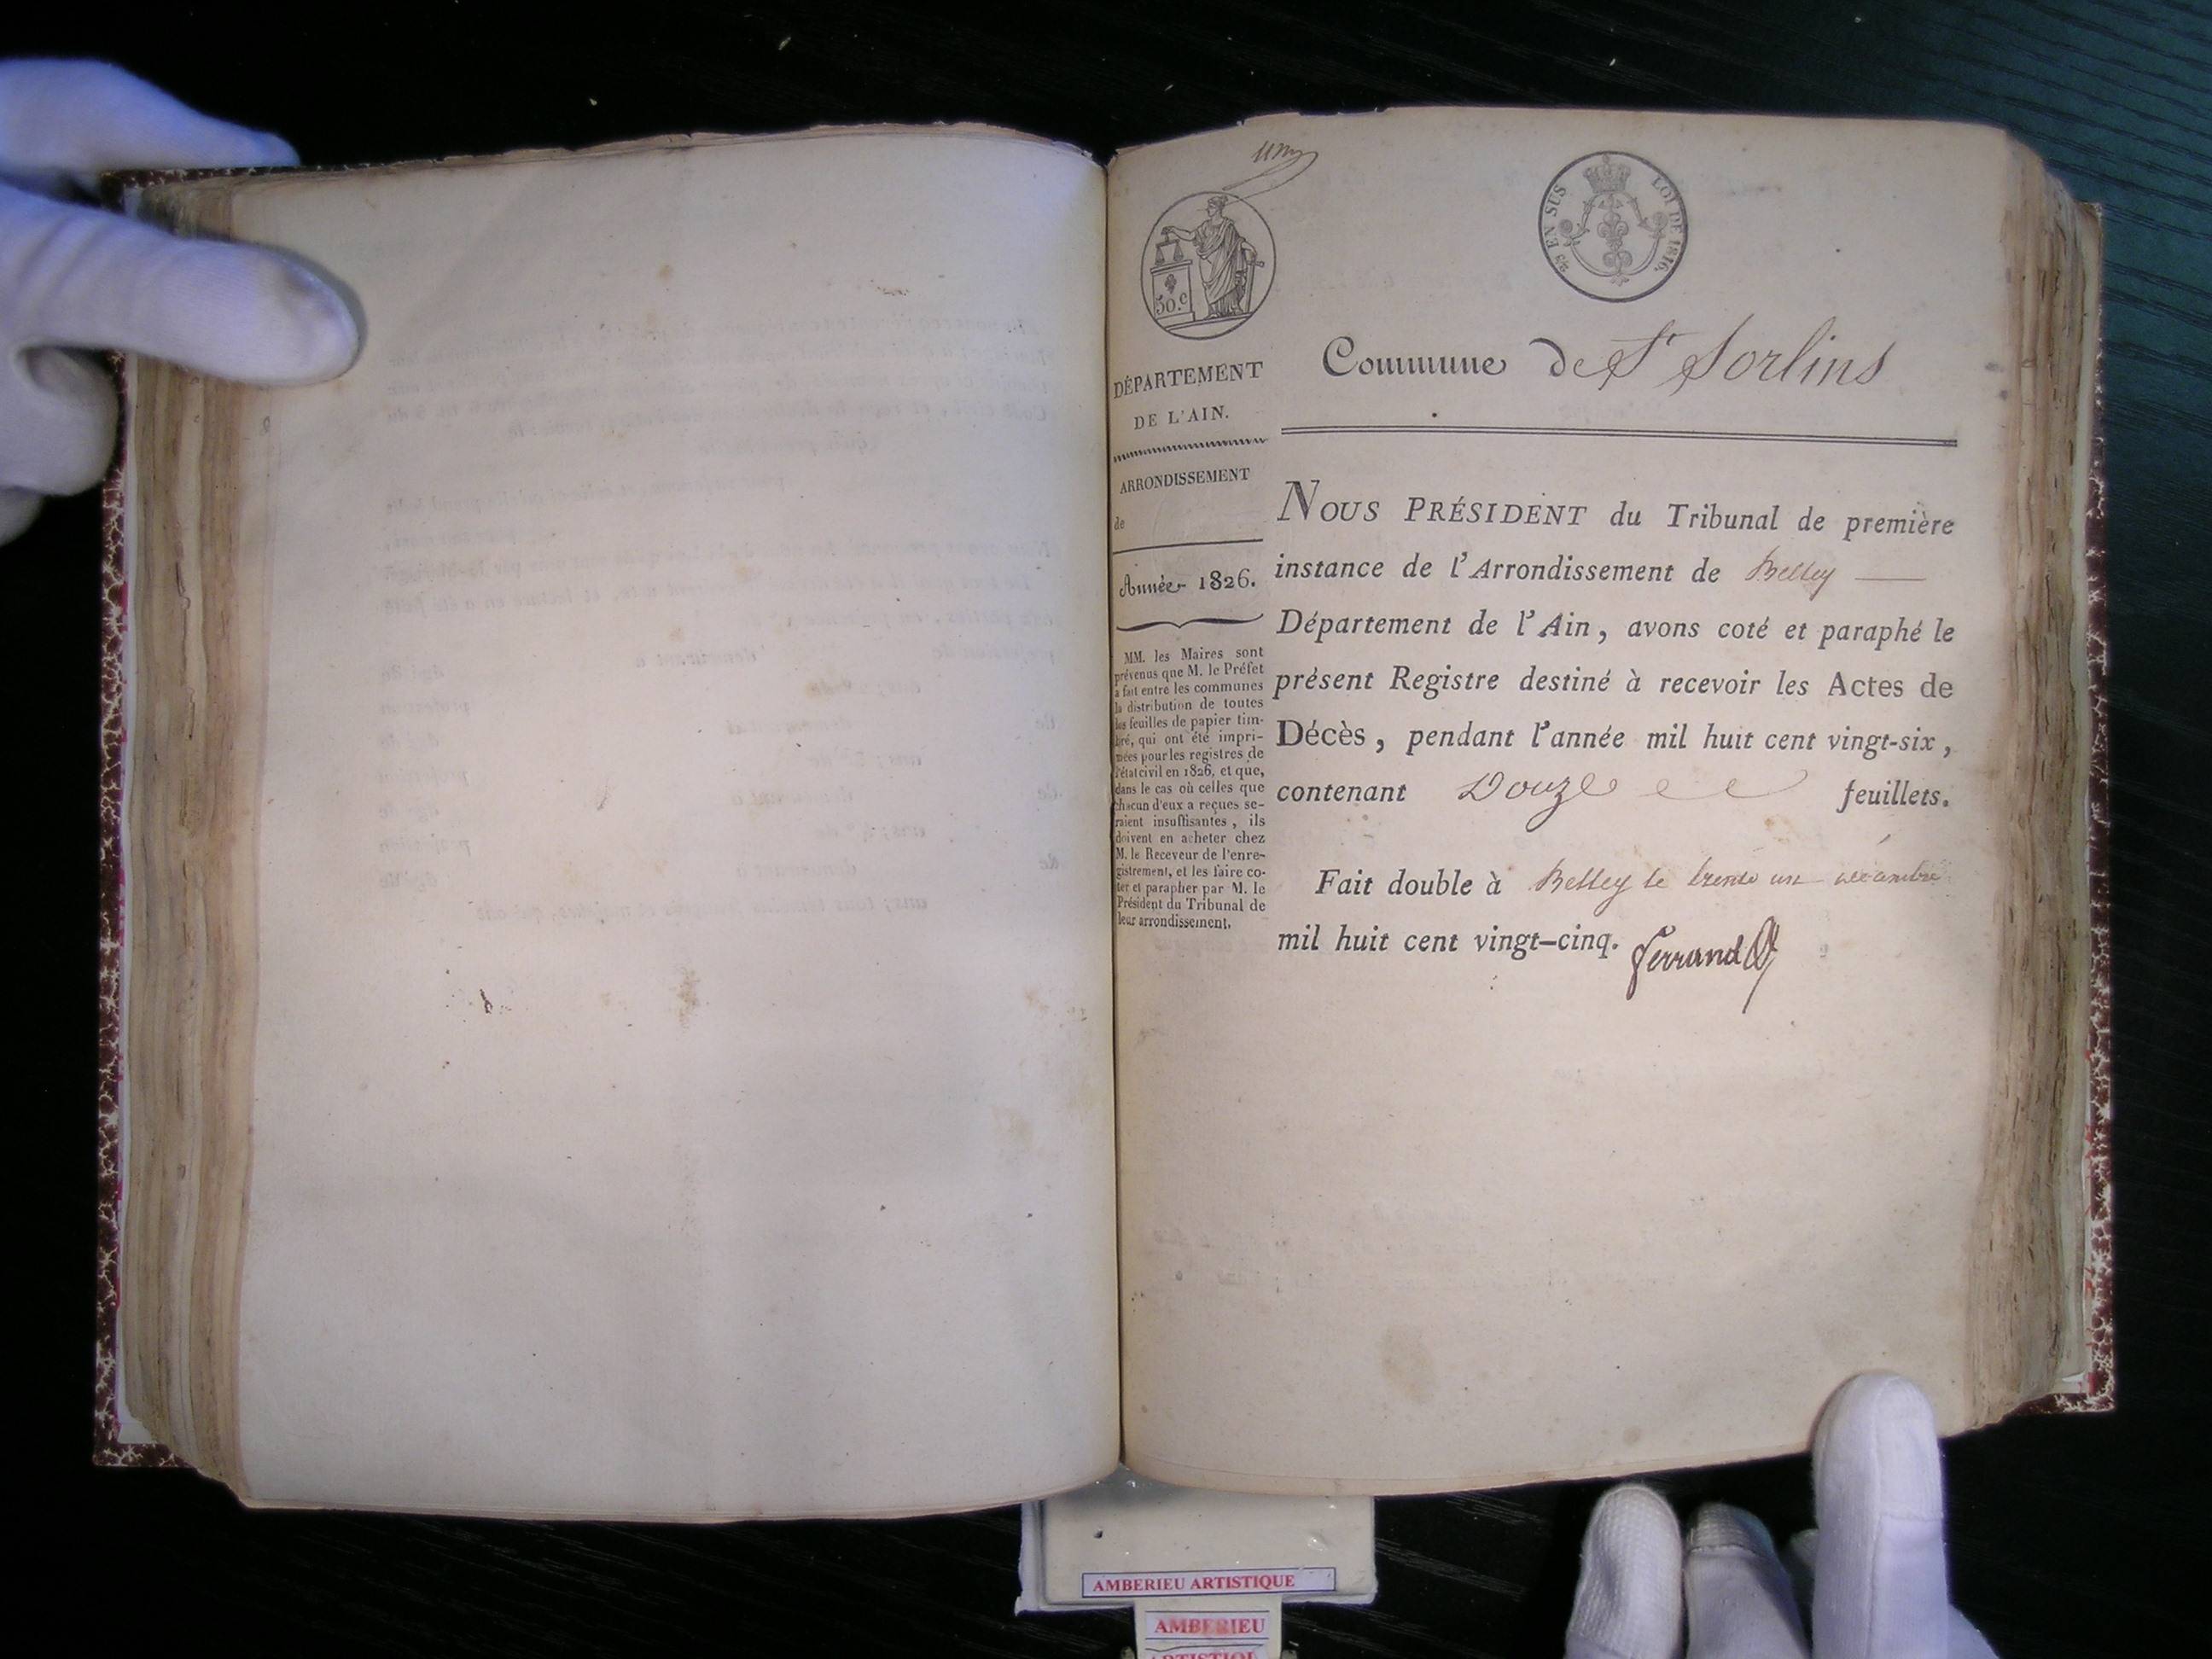 un
50.c
EN SUS LOI DE 1816.
DÉPARTEMENT
DE L'AIN.
ARRONDISSEMENT
de
Année 1826.
MM. les Maires sont
prévenus que M. le Préfet
a fait entre les communes
la distribution de toutes
les feuilles de papier tim-
bré, qui ont été impri-
mées pour les registres de
l'état civil en 1826, et que,
dans le cas où celles que
chacun d'eux a reçues se-
raient insuffisantes, ils
doivent en acheter chez
M. le Receveur de l'enre-
gistrement, et les faire co-
ter et parapher par M. le
Président du Tribunal de
leur arrondissement.
Commune de St Sorlins
NOUS PRÉSIDENT du Tribunal de première
instance de l'Arrondissement de Belley
Département de l'Ain, avons coté et paraphé le
présent Registre destiné à recevoir les Actes de
Décès, pendant l'année mil huit cent vingt-six,
contenant Douze feuillets.
Fait double à Belley le trente un décembre
mil huit cent vingt-cinq.
Ferrand
AMBERIEU ARTISTIQUE
AMBERIEU
ARTISTIQUE